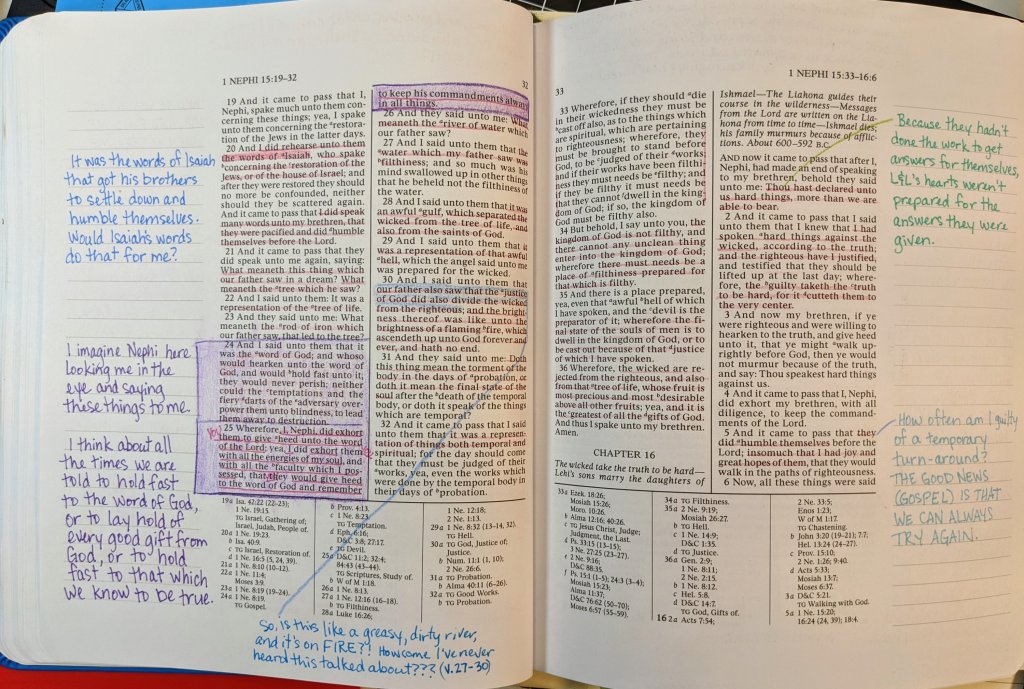 1 NEPHI 15:19–32
32
It was the words of Isaiah
that got his brothers
to settle down and
humble themselves.
Would Isaiah's words
do that for me?
I imagine Nephi here
looking me in the
eye and saying
these things to me.
I think about all
the times we are
told to hold fast
to the word of God,
or to lay hold of
every good gift from
God, or to hold
fast to that which
we know to be true.
19 And it came to pass that I,
Nephi, spake much unto them con-
cerning these things; yea, I spake
unto them concerning the restora-
tion of the Jews in the latter days.
20 And I did rehearse unto them
the words of Isaiah, who spake
concerning the restoration of the
Jews, or of the house of Israel; and
after they were restored they should
no more be confounded, neither
should they be scattered again.
And it came to pass that I did speak
many words unto my brethren, that
they were pacified and did humble
themselves before the Lord.
21 And it came to pass that they
did speak unto me again, saying:
What meaneth this thing which
our father saw in a dream? What
meaneth the tree which he saw?
22 And I said unto them: It was a
representation of the tree of life.
23 And they said unto me: What
meaneth the rod of iron which
our father saw, that led to the tree?
24 And I said unto them that it
was the word of God; and whoso
would hearken unto the word of
God, and would hold fast unto it,
they would never perish; neither
could the temptations and the
fiery darts of the adversary over-
power them unto blindness, to lead
them away to destruction.
25 Wherefore, I, Nephi, did exhort
them to give heed unto the word
of the Lord; yea, I did exhort them
with all the energies of my soul, and
with all the faculty which I pos-
sessed, that they would give heed
to the word of God and remember
to keep his commandments always
in all things.
26 And they said unto me: What
meaneth the river of water which
our father saw?
27 And I said unto them that the
water which my father saw was
filthiness; and so much was his
mind swallowed up in other things
that he beheld not the filthiness of
the water.
28 And I said unto them that it was
an awful gulf, which separated the
wicked from the tree of life, and
also from the saints of God.
29 And I said unto them that it
was a representation of that awful
hell, which the angel said unto me
was prepared for the wicked.
30 And I said unto them that
our father also saw that the justice
of God did also divide the wicked
from the righteous; and the bright-
ness thereof was like unto the
brightness of a flaming fire, which
ascendeth up unto God forever and
ever, and hath no end.
31 And they said unto me: Doth
this thing mean the torment of the
body in the days of probation, or
doth it mean the final state of the
soul after the death of the temporal
body, or doth it speak of the things
which are temporal?
32 And it came to pass that I said
unto them that it was a represen-
tation of things both temporal and
spiritual; for the day should come
that they must be judged of their
works, yea, even the works which
were done by the temporal body in
their days of probation.
19a Isa. 42:22 (22–23);
1 Ne. 19:15.
TG Israel, Gathering of;
Israel, Judah, People of.
20a 1 Ne. 19:23.
b Isa. 40:9.
c TG Israel, Restoration of.
d 1 Ne. 16:5 (24, 39).
21a 1 Ne. 8:10 (10–12).
22a 1 Ne. 11:4;
Moses 3:9.
23a 1 Ne. 8:19 (19–24).
24a 1 Ne. 8:19.
TG Gospel.
b Prov. 4:13.
c 1 Ne. 8:23.
TG Temptation.
d Eph. 6:16;
D&C 3:8; 27:17.
e TG Devil.
25a D&C 11:2; 32:4;
84:43 (43–44).
TG Scriptures, Study of.
b W of M 1:18.
26a 1 Ne. 8:13.
27a 1 Ne. 12:16 (16–18).
b TG Filthiness.
28a Luke 16:26;
1 Ne. 12:18;
2 Ne. 1:13.
29a 1 Ne. 8:32 (13–14, 32).
TG Hell.
30a TG God, Justice of;
Justice.
b Num. 11:1 (1, 10);
2 Ne. 26:6.
31a TG Probation.
b Alma 40:11 (6–26).
32a TG Good Works.
b TG Probation.
So, is this like a greasy, dirty river,
and it's on FIRE?! How come I've never
heard this talked about??? (v.27-30)
33
1 NEPHI 15:33–16:6
33 Wherefore, if they should die
in their wickedness they must be
cast off also, as to the things which
are spiritual, which are pertaining
to righteousness; wherefore, they
must be brought to stand before
God, to be judged of their works;
and if their works have been filthi-
ness they must needs be filthy; and
if they be filthy it must needs be
that they cannot dwell in the king-
dom of God; if so, the kingdom of
God must be filthy also.
34 But behold, I say unto you, the
kingdom of God is not filthy, and
there cannot any unclean thing
enter into the kingdom of God;
wherefore there must needs be a
place of filthiness prepared for
that which is filthy.
35 And there is a place prepared,
yea, even that awful hell of which
I have spoken, and the devil is the
preparator of it; wherefore the fi-
nal state of the souls of men is to
dwell in the kingdom of God, or to
be cast out because of that justice
of which I have spoken.
36 Wherefore, the wicked are re-
jected from the righteous, and also
from that tree of life, whose fruit is
most precious and most desirable
above all other fruits; yea, and it is
the greatest of all the gifts of God.
And thus I spake unto my brethren.
Amen.
CHAPTER 16
The wicked take the truth to be hard—
Lehi's sons marry the daughters of
Ishmael—The Liahona guides their
course in the wilderness—Messages
from the Lord are written on the Lia-
hona from time to time—Ishmael dies;
his family murmurs because of afflic-
tions. About 600–592 B.C.
AND now it came to pass that after I,
Nephi, had made an end of speaking
to my brethren, behold they said
unto me: Thou hast declared unto
us hard things, more than we are
able to bear.
2 And it came to pass that I said
unto them that I knew that I had
spoken hard things against the
wicked, according to the truth;
and the righteous have I justified,
and testified that they should be
lifted up at the last day; where-
fore, the guilty taketh the truth
to be hard, for it cutteth them to
the very center.
3 And now my brethren, if ye
were righteous and were willing to
hearken to the truth, and give heed
unto it, that ye might walk up-
rightly before God, then ye would
not murmur because of the truth,
and say: Thou speakest hard things
against us.
4 And it came to pass that I, Nephi,
did exhort my brethren, with all
diligence, to keep the command-
ments of the Lord.
5 And it came to pass that they
did humble themselves before the
Lord; insomuch that I had joy and
great hopes of them, that they would
walk in the paths of righteousness.
6 Now, all these things were said
33a Ezek. 18:26;
Mosiah 15:26;
Moro. 10:26.
b Alma 12:16; 40:26.
c TG Jesus Christ, Judge;
Judgment, the Last.
d Ps. 33:15 (13–15);
3 Ne. 27:25 (23–27).
e 2 Ne. 9:16;
D&C 88:35.
f Ps. 15:1 (1–5); 24:3 (3–4);
Mosiah 15:23;
Alma 11:37;
D&C 76:62 (50–70);
Moses 6:57 (55–59).
34a TG Filthiness.
35a 2 Ne. 9:19;
Mosiah 26:27.
b TG Hell.
c 1 Ne. 14:9;
D&C 1:35.
d TG Justice.
36a Gen. 2:9;
1 Ne. 8:11;
2 Ne. 2:15.
b 1 Ne. 8:12.
c Hel. 5:8.
d D&C 14:7.
TG God, Gifts of.
16 2a Acts 7:54;
2 Ne. 33:5;
Enos 1:23;
W of M 1:17.
TG Chastening.
b John 3:20 (19–21); 7:7;
Hel. 13:24 (24–27).
c Prov. 15:10;
2 Ne. 1:26; 9:40.
d Acts 5:33;
Mosiah 13:7;
Moses 6:37.
3a D&C 5:21.
TG Walking with God.
5a 1 Ne. 15:20;
16:24 (24, 39); 18:4.
Because they hadn't
done the work to get
answers for themselves,
L&L's hearts weren't
prepared for the
answers they were
given.
How often am I guilty
of a temporary
turn-around?
THE GOOD NEWS
(GOSPEL) IS THAT
WE CAN ALWAYS
TRY AGAIN.